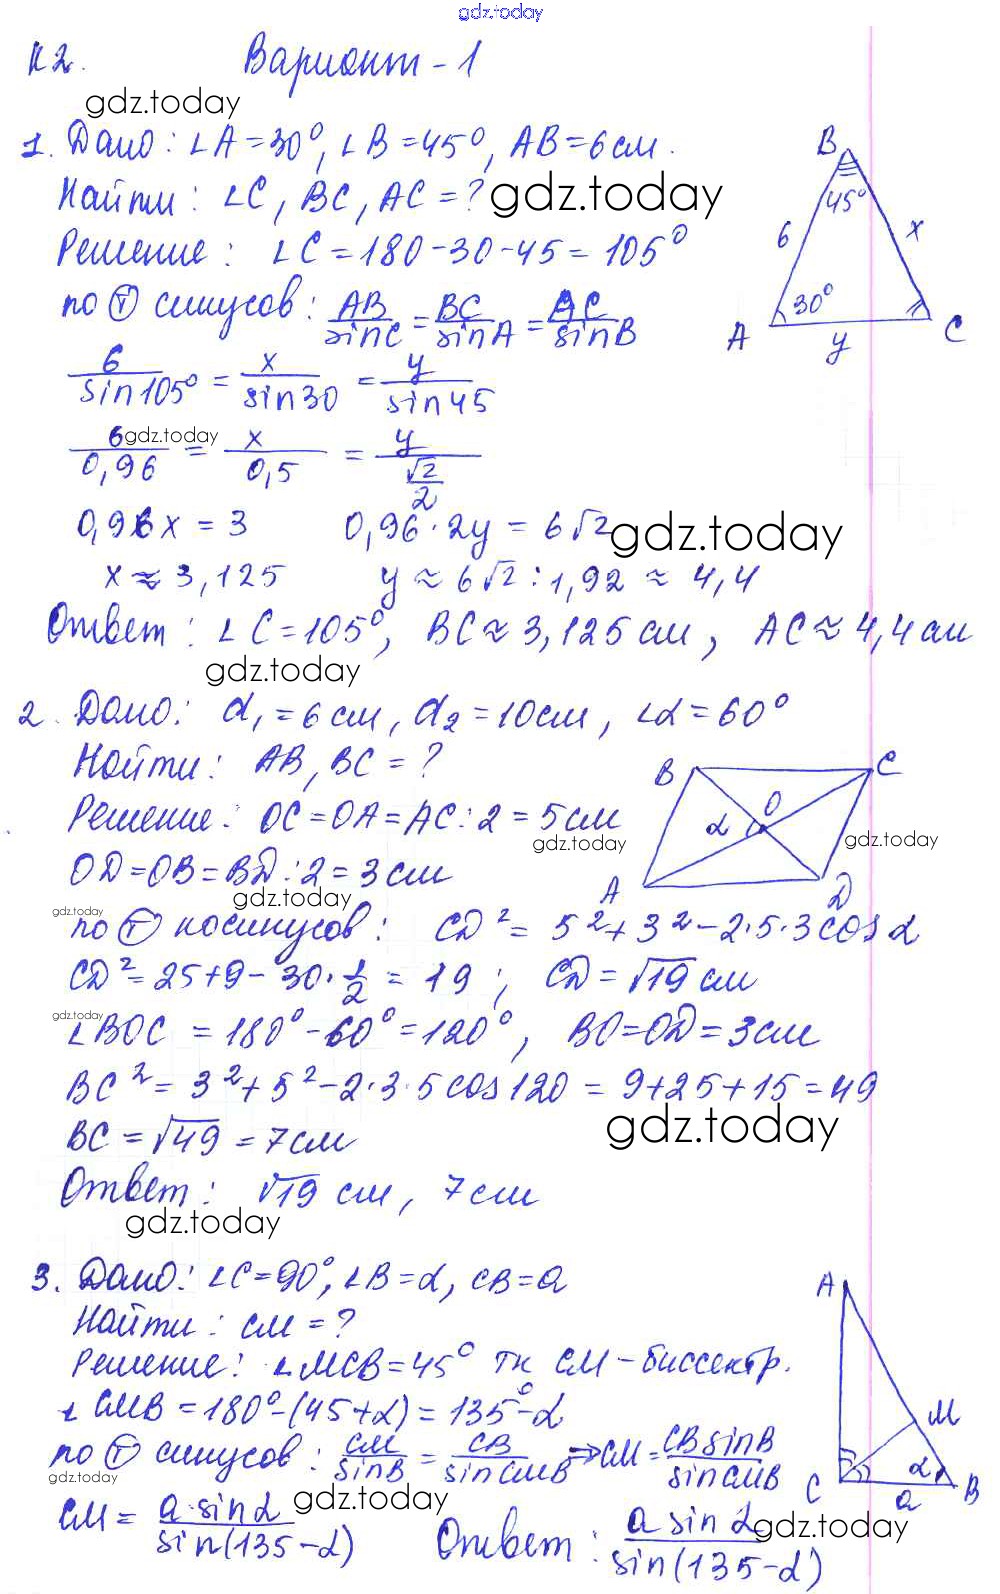 gdz.today
К2. Вариант-1
gdz.today
1. Дано: ∠A=30°, ∠B=45°, AB=6см.
Найти: ∠C, BC, AC=? gdz.today
Решение: ∠C=180-30-45=105°
по Ⓣ синусов: AB/sinC = BC/sinA = AC/sinB
6/sin105° = x/sin30 = y/sin45
6/0,96 = x/0,5 = y/(√2/2) gdz.today
0,96x = 3 0,96·2y = 6√2 gdz.today
x ≈ 3,125 y ≈ 6√2 : 1,92 ≈ 4,4
Ответ: ∠C=105°, BC≈3,125см, AC≈4,4см
gdz.today
B
45°
6 x
30°
A y C
2. Дано: d₁=6см, d₂=10см, ∠α=60°
Найти: AB, BC=?
Решение: OC=OA=AC:2=5см
gdz.today
gdz.today
OD=OB=BD:2=3см
gdz.today
gdz.today
по Ⓣ косинусов: CD²= 5²+3²-2·5·3cosα
CD²=25+9-30·1/2 = 19; CD=√19см
gdz.today
∠BOC = 180°-60°=120°, BO=OD=3см
BC²= 3²+5²-2·3·5cos120 = 9+25+15=49
gdz.today
BC=√49=7см
Ответ: √19 см, 7см
gdz.today
B C
O
α
A D
3. Дано: ∠C=90°, ∠B=α, CB=a
Найти: CM=?
Решение: ∠MCB=45° тк CM-биссектр.
∠CMB=180°-(45+α)=135°-α
по Ⓣ синусов: CM/sinB = CB/sinCMB ⇒ CM= CBsinB/sinCMB
gdz.today
CM= a·sinα/sin(135-α) gdz.today
Ответ: a sinα/sin(135-α) gdz.today
A
M
α
C a B